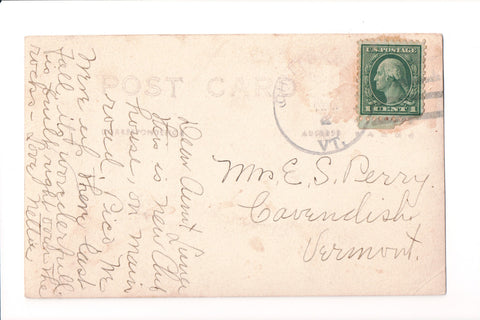 POST CARD
CORRESPONDENCE
ADDRESS
U.S. POSTAGE
1 CENT 1
2
VT.
Mrs. E. S. Perry.
Cavendish
Vermont.
Dear Aunt
This is new Club
house, on main
road, Pico Mt
Was up there last
fall, its wonderful.
is built right on the
rocks - Love Nella